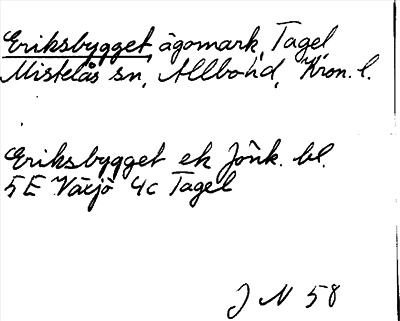 Eriksbygget, ägomark, Tagel,
Mistelås sn, Allbo hd, Kron. l.
Eriksbygget ek Jönk. bl.
5 E Växjö 4c Tagel
J N 58